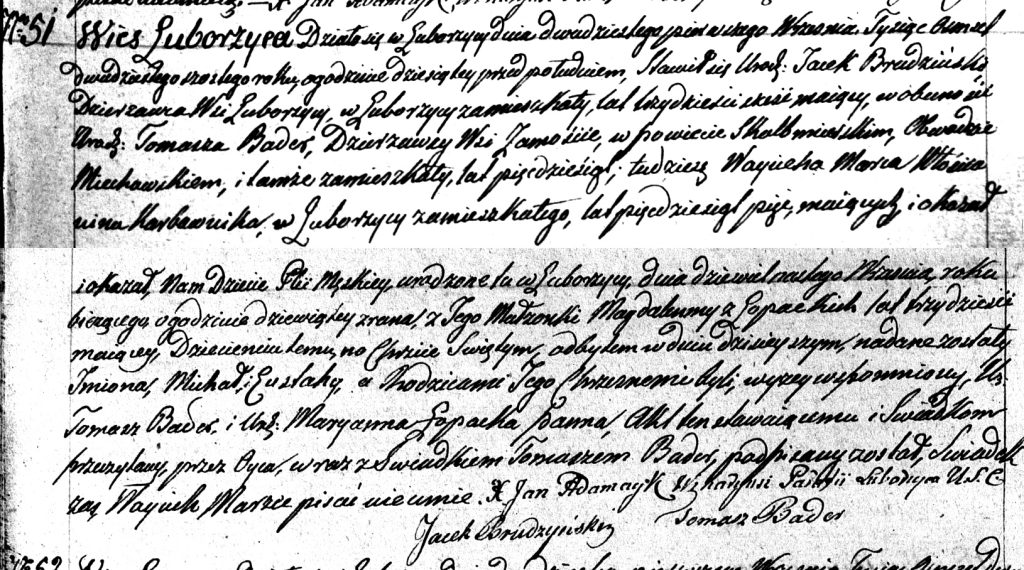 Nro 51 Wieś Luborzyca Działo się w Luborzycy dnia dwudziestego pierwszego Września Tysiąc Osmset
dwudziestego szostego roku, o godzinie dziesiątey przed południem, Stawił się Urod: Jacek Brudziński
Dzierzawca Wsi Luborzycy, w Luborzycy zamieszkały, lat trzydzieści sześć maiący, w obecności
Urodz: Tomasza Bader, Dzierzawcy Wsi Zamoście, w Powiecie Skalbmierskim, Obwodzie
Miechowskiem, i tamże zamieszkały, lat pięćdziesiąt; tudziesz Woyciecha Marca Włościa
nina Karbownika, w Luborzycy zamieszkałego, lat pięćdziesiąt pięć, maiących, i okazał
i okazał Nam Dziecie Płci Męskiey, urodzone tu w Luborzycy, dnia dziewietnastego Września, roku
bieżącego, o godzinie dziewiątey zrana, z Jego Małżonki Magdaleny z Łopackich lat trzydzieści
maiącey, Dziecieniu temu, na Chrzcie Swiętym, odbytem w dniu dzisieyszym, nadane zostały
Imiona, Michał i Eustachy, a Rodzicami Jego Chrzesnemi byli, wyzey wspomniony, Ur.
Tomasz Bader, i Urz: Maryanna Łopacka Panna, Akt ten stawaiącemu i Swiadkom
przeczytany, przez Oyca, wraz z Swiadkiem Tomaszem Bader, podpisany został, Swiadek
zaś Woyciech Marzec pisać nieumie. X Jan Adamczyk Wikaryusz Parafii Luborzyca U. S. C.
Jacek Brudzyński Tomasz Bader